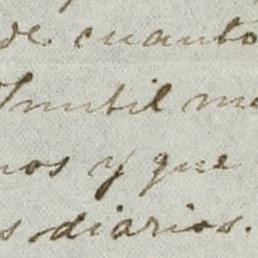 de cuanto
Inutil me
nos y que
s diarios.